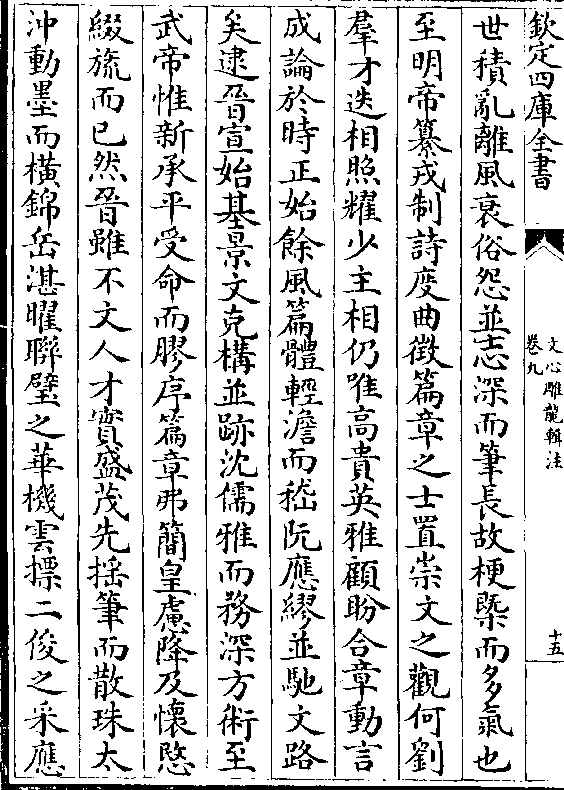 欽定四庫全書
文心雕龍輯注
卷九
十五
世積亂離風衰俗怨並志深而筆長故梗槩而多氣也
至明帝纂戎制詩度曲徵篇章之士置崇文之觀何劉
羣才迭相照耀少主相仍唯高貴英雅顧盼合章動言
成論於時正始餘風篇體輕澹而嵇阮應繆並馳文路
矣逮晉宣始基景文克構並跡沈儒雅而務深方術至
武帝惟新承平受命而膠序篇章弗簡皇慮降及懷愍
綴旒而已然晉雖不文人才實盛茂先揺筆而散珠太
沖動墨而橫錦岳湛曜聯璧之華機雲摽二俊之采應